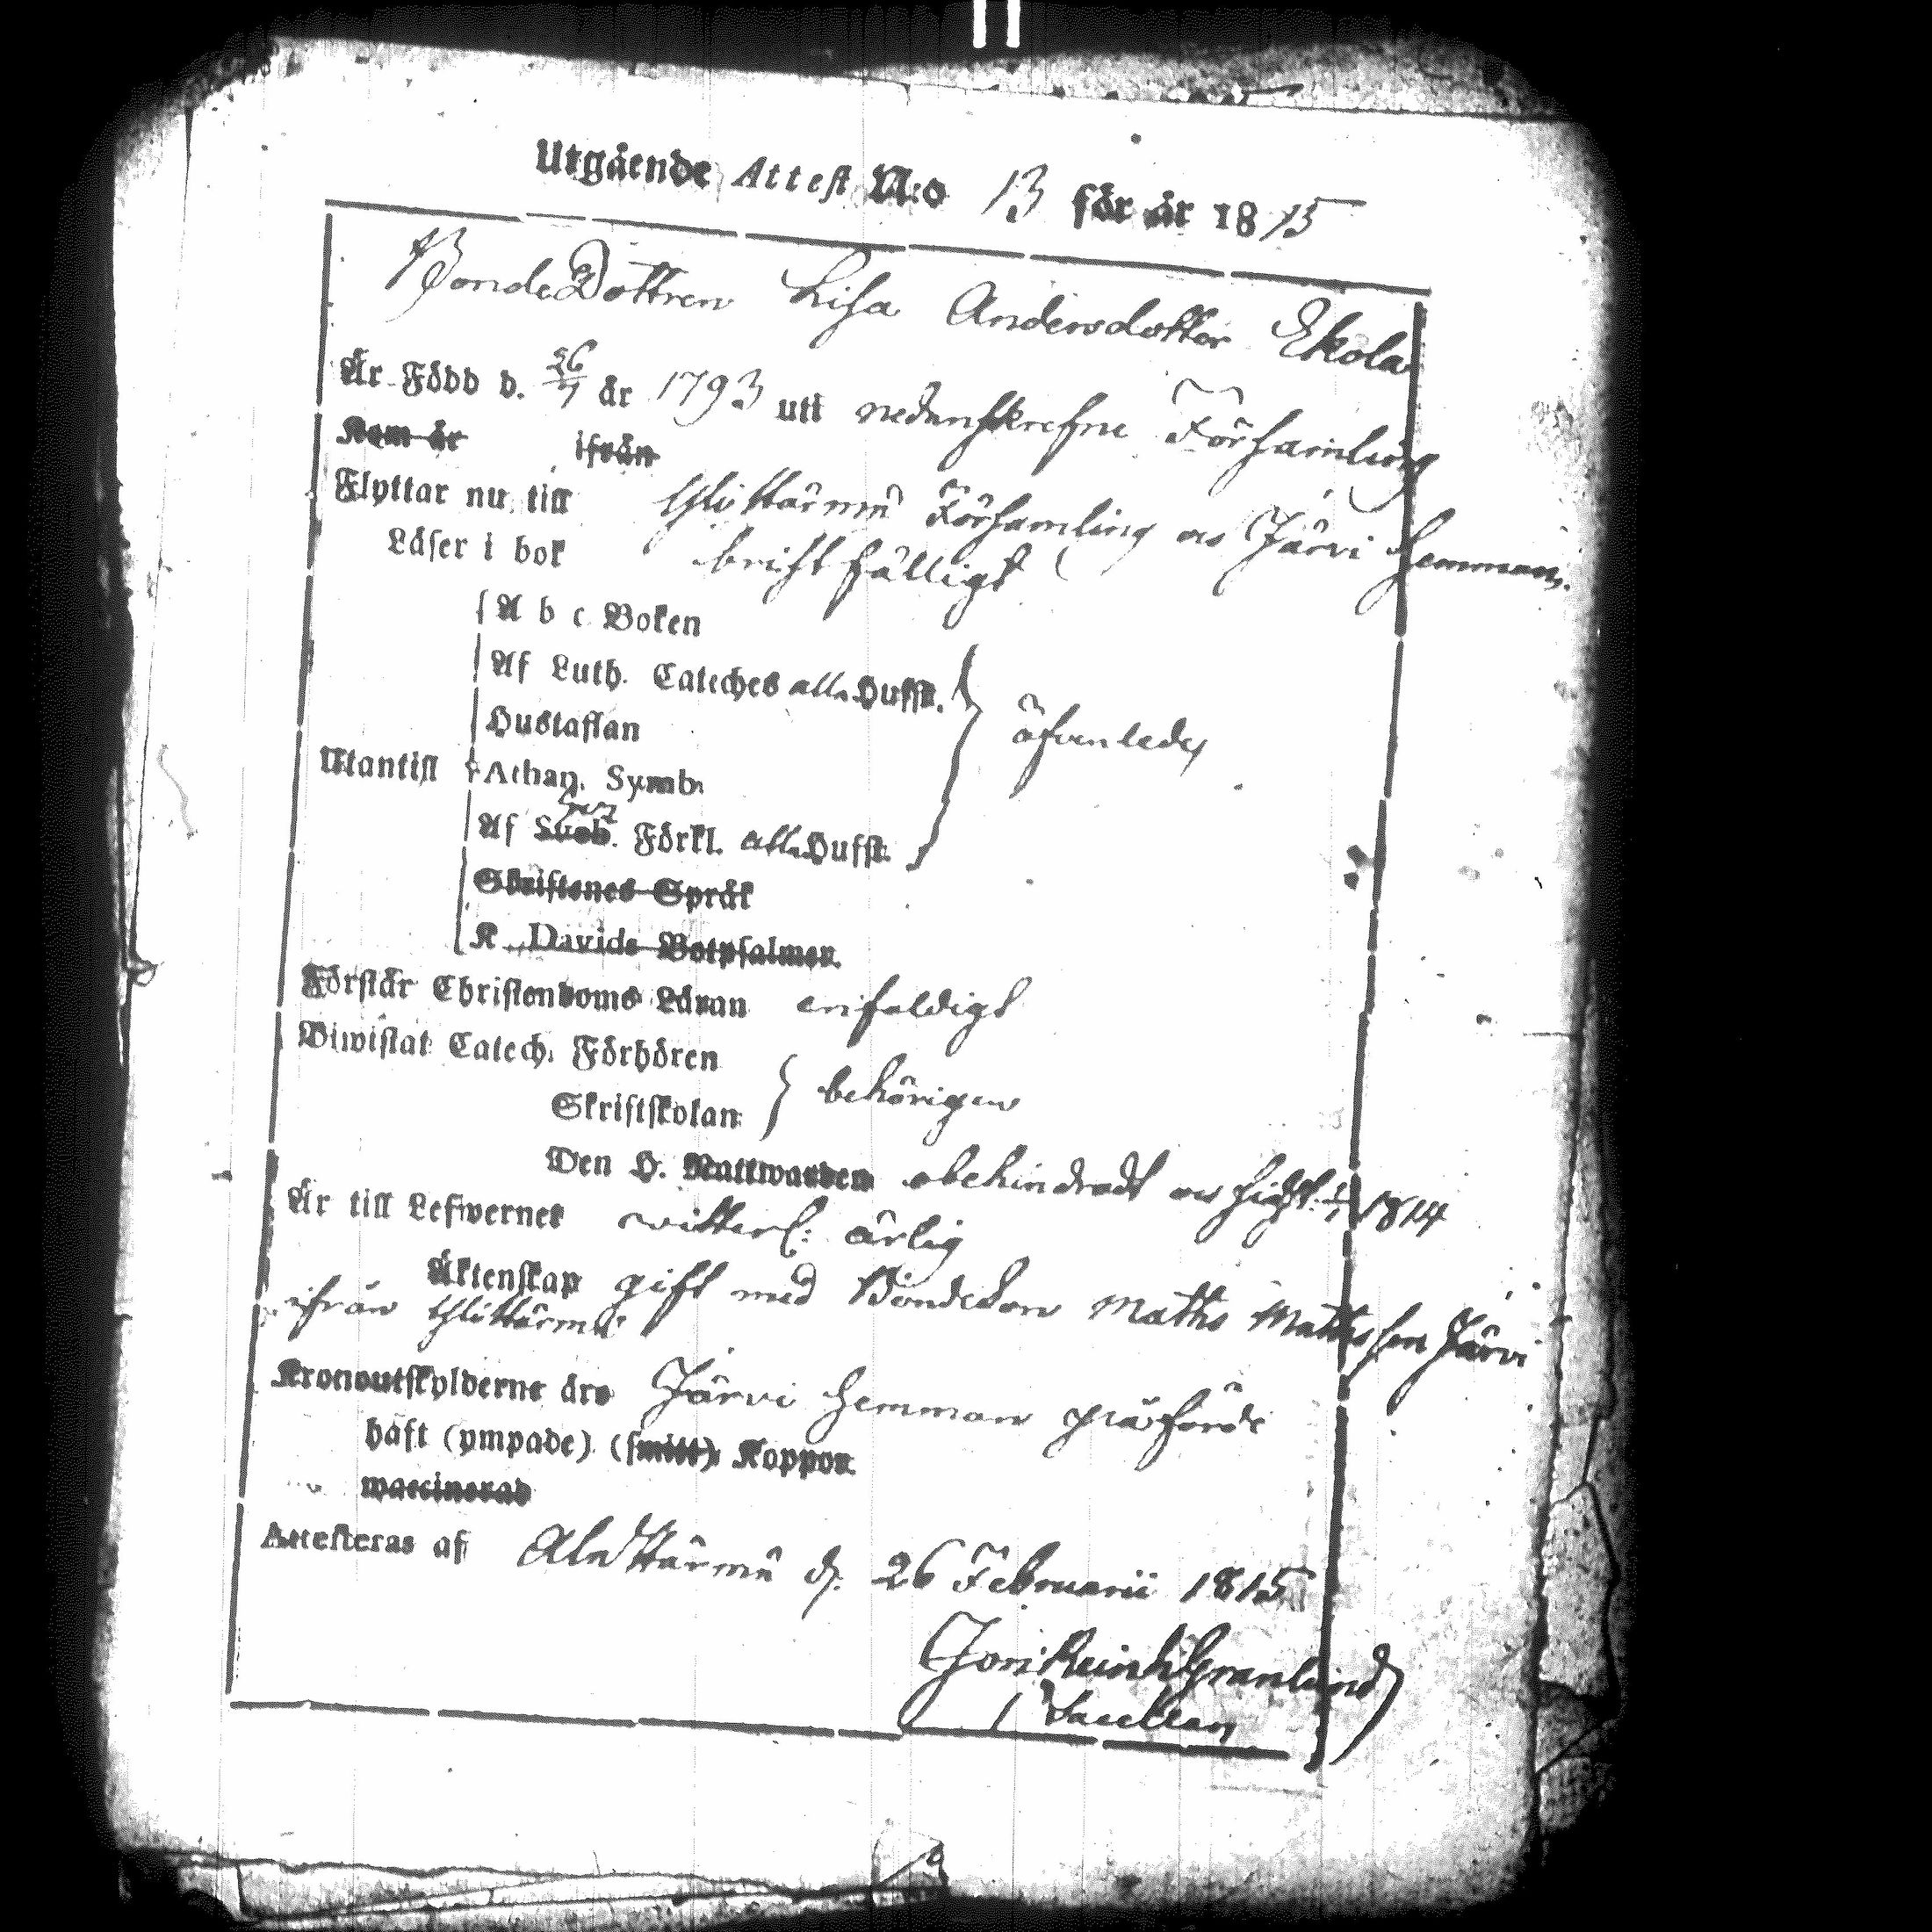 Utgående Attest N:o 13 för år 1815
BondeDottren Lisa Andersdotter Ekola
Är Född d. 26/7 år 1793 uti nedanskrefne Församling
Kom år ifrån
Flyttar nu till Församling os Järvi hemman.
Läser i bok bristfälligt
A b c Boken
Af Luth. Cateches alla Hufst.
Hustaflan
äfvenledes
Utantill Athan. Symb.
Af Sveb. Förkl. alla Hufst.
Skriftenes Språk
K. Davids Botpsalmer.
Förstår Christendoms Läran enfaldigt
Biwistat Catech. Förhören
Skriftskolan behörigen
Den H. Nattwarden obehindradt 1814
Är till Lefwernet witterl: ärlig
Äktenskap gift med Bondeson Matts Mattsson Järvi
ifrån
Kronoutskylderne äro Järvi hemman påförde
haft (ympade) (smitt) Koppor
waccinerad
Attesteras af d. 26 Februarii 1815
Reinh Granlund
Sacellan